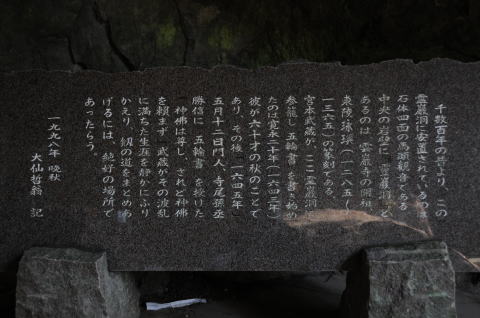 千数百年の昔より、この
霊巌洞に安置されているのは
石体四面の馬頭観音である
中央の岩壁に「霊巌洞」と
あるのは、霊巌寺の開祖
東陵永璵(一二八五-
一三六五)の篆刻である。
宮本武蔵が、ここ霊巌洞に
参籠し「五輪書」を書き始め
たのは寛永二十年(一六四三年)
彼が六十才の秋のことで
あり、その後(一六四五年)
五月十二日門人、寺尾孫丞
勝信に「五輪書」を授けた
神佛は尊し、されど神佛
を頼まず。武蔵がその波乱
に満ちた生涯を静かにふり
かえり、剣の道をまとめあ
げるには、絶好の場所で
あったろう。
一九九八年 晩秋
大仙哲翁 記